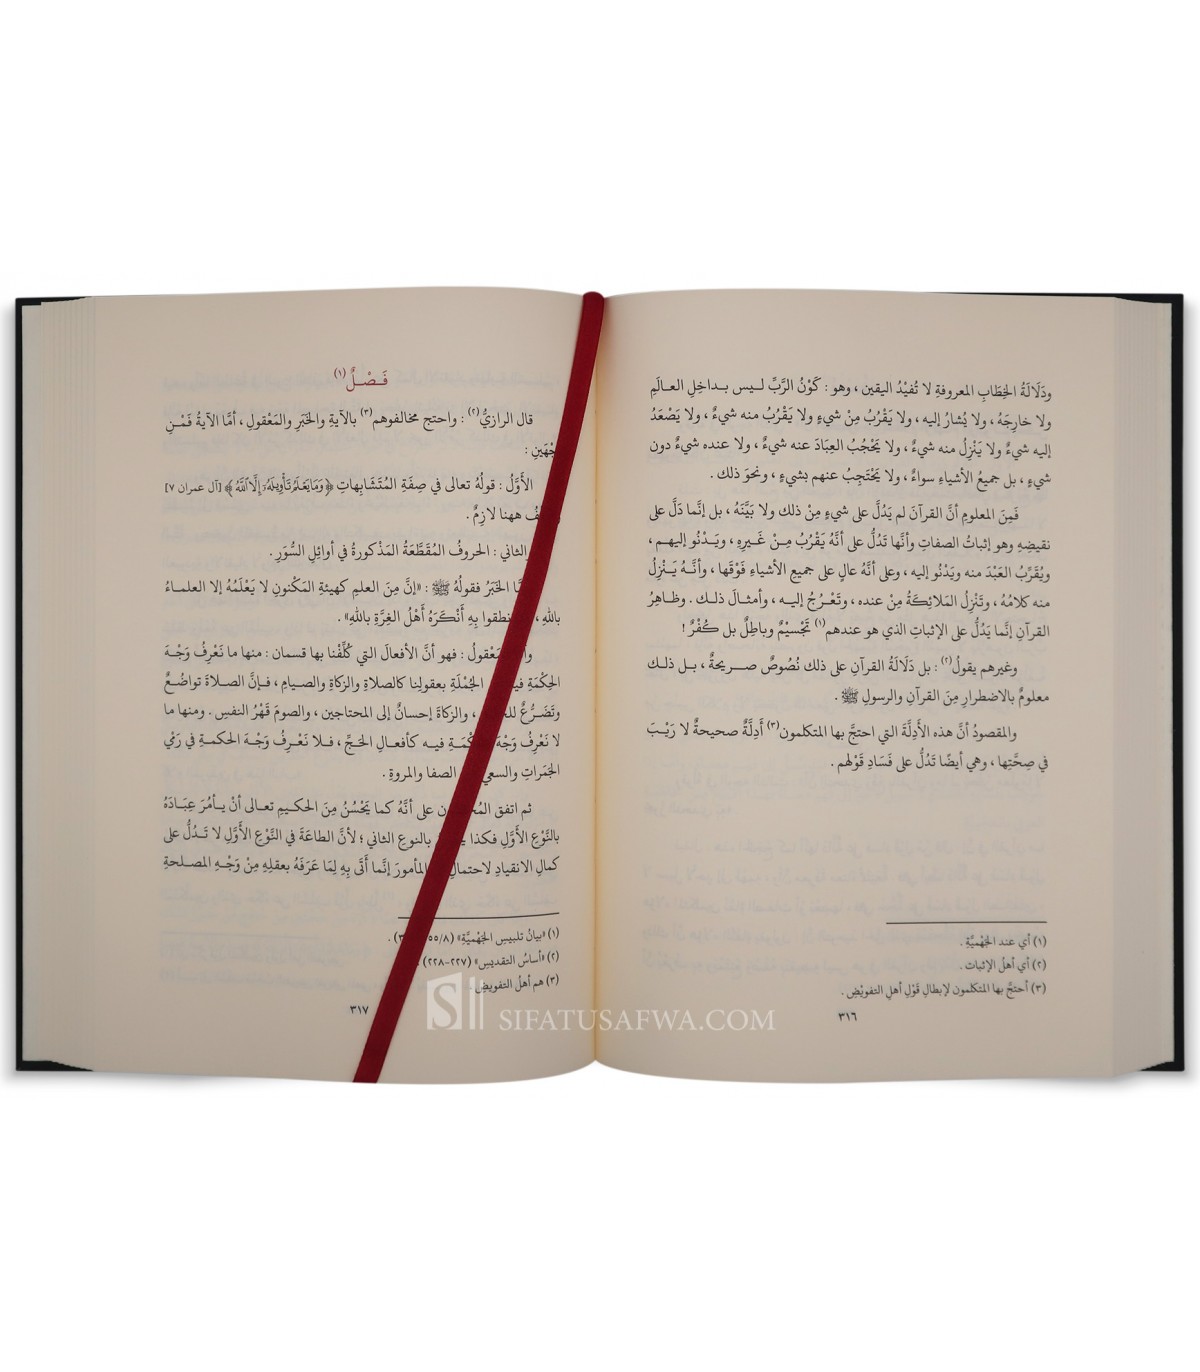 ودَلَالَةُ الخِطَابِ المعروفةِ لا تُفيْدُ اليقين ، وهو : كَوْنُ الرَّبِّ ليس بـداخِلِ العـالَمِ
ولا خارِجَهُ ، ولا يُشارُ إليه ، ولا يَقْرُبُ مِنْ شيءٍ ولا يَقْرُبُ منه شيءٌ ، ولا يَصْعَدُ
إليه شيءٌ ولا يَنْزِلُ منه شيءٌ ، ولا يَحْجُبُ العِبَادَ عنه شيءٌ ، ولا عنده شيءٌ دون
شيءٍ ، بل جميعُ الأشياءِ سواءٌ ، ولا يَحْتَجِبُ عنهم بشيءٍ ، ونحوَ ذلك .
فَمِنَ المعلومِ أنَّ القرآنَ لم يَدُلَّ على شيءٍ مِنْ ذلك ولا بَيَّنَهُ ، بل إنَّما دَلَّ على
نقيضِهِ وهو إثباتُ الصفاتِ وأنَّها تَدُلُّ على أنَّهُ يَقْرُبُ مِـنْ غَـيرِهِ ، ويَـدْنُو إليهـم ،
ويُقَرِّبُ العَبْدَ منه ويَدْنُو إليه ، وعلى أنَّهُ عالٍ على جميعِ الأشياءِ فَوْقَها ، وأنَّـهُ يَـنْزِلُ
منه كلامُهُ ، وتَنْزِلُ المَلائِكَةُ مِن عنده ، وتَعْرُجُ إليـه ، وأمثـالَ ذلـك . وظـاهِرُ
القرآنِ إنَّما يَدُلُّ على الإثباتِ الذي هو عندهم(١) تَجْسِيْمٌ وباطِلٌ بل كُفْرٌ !
وغيرهم يقولُ(٢) : بل دَلَالَةُ القرآنِ على ذلك نُصُوصٌ صـريحةٌ ، بـل ذلـك
معلومٌ بالاضطرارِ مِنَ القرآنِ والرسولِ ﷺ .
والمقصودُ أنَّ هذه الأدِلَّةَ التي احتجَّ بها المتكلمون(٣) أَدِلَّةٌ صحيحةٌ لا رَيْـبَ
في صِحَّتِها ، وهي أيضًا تَدُلُّ على فَسَادِ قَوْلهم .
(١) أي عند الجَهْمِيَّةِ .
(٢) أي أهلُ الإثبات .
(٣) أحتجَّ بها المتكلمون لإبطالِ قَوْلِ أهلِ التفويْضِ .
٣١٦
فَـصْـلٌ(١)
قال الرازيُّ(٢) : واحتج مخالفوهم(٣) بالآيةِ والخَبَرِ والمَعْقولِ ، أمَّا الآيةُ فَمِْـنْ
جْهَينِ :
الأَوَّلُ : قولُهُ تعالى في صِفَةِ المُتَشَابِهاتِ ﴿وَمَا يَعْلَمُ تَأْوِيلَهُۥٓ إِلَّا ٱللَّهُ﴾ [آل عمران ٧]
ههنا لازِمٌ .
والثاني : الحروفُ المُقَطَّعَةُ المَذْكورةُ في أوائِلِ السُّوَرِ .
الخَبَرُ فقولُهُ ﷺ : «إنَّ مِنَ العلمِ كهيئةِ المَكْنونِ لا يَعْلَمُهُ إلا العلمـاءُ
باللهِ ، نطقوا بِهِ أَنْكَرَهُ أَهْلُ الغِرَّةِ باللهِ» .
المَعْقولُ : فهو أنَّ الأفعالَ التي كُلِّفْنا بها قسمان : منها ما نَعْرِفُ وَجْـهَ
الحِكْمَةِ الجُمْلَةِ بعقولِنا كالصلاةِ والزكاةِ والصيـامِ ، فـإنَّ الصـلاةَ تواضُـعٌ
وتَضَرُّعٌ ، والزكاةَ إحسانٌ إلى المحتاجين ، والصومَ قَهْرُ النفسِ . ومنها ما
لا نَعْرِفُ وَجْهَ الحِكْمَةِ فيـه كأفعـالِ الحَجِّ ، فـلا نَعْرِفُ وَجْـهَ الحكمـةِ في رَمْيِ
الجَمَراتِ والسعي الصفا والمروةِ .
ثم اتفق على أنَّهُ كما يَحْسُنُ مِنَ الحكيمِ تعالى أنْ يـأمُرَ عِبَـادَهُ
بالنَّوْعِ الأَوَّلِ فكذا بالنوعِ الثاني ؛ لأنَّ الطاعةَ في النَّوْعِ الأَوَّلِ لا تَـدُلُّ على
كمالِ الانقيادِ لاحتمالِ المأمورَ إنَّما أَتَى بِهِ لِمَا عَرَفَهُ بعقلِهِ مِنْ وَجْـهِ المصـلحةِ
(١) «بيانُ تلبيسِ الجَهْميَّةِ» (٨/
(٢) «أساسُ التقديس» (٢٢٧-٢٢٨)
(٣) هم أهلُ التفويضِ .
٣١٧
SIFATUSAFWA.COM